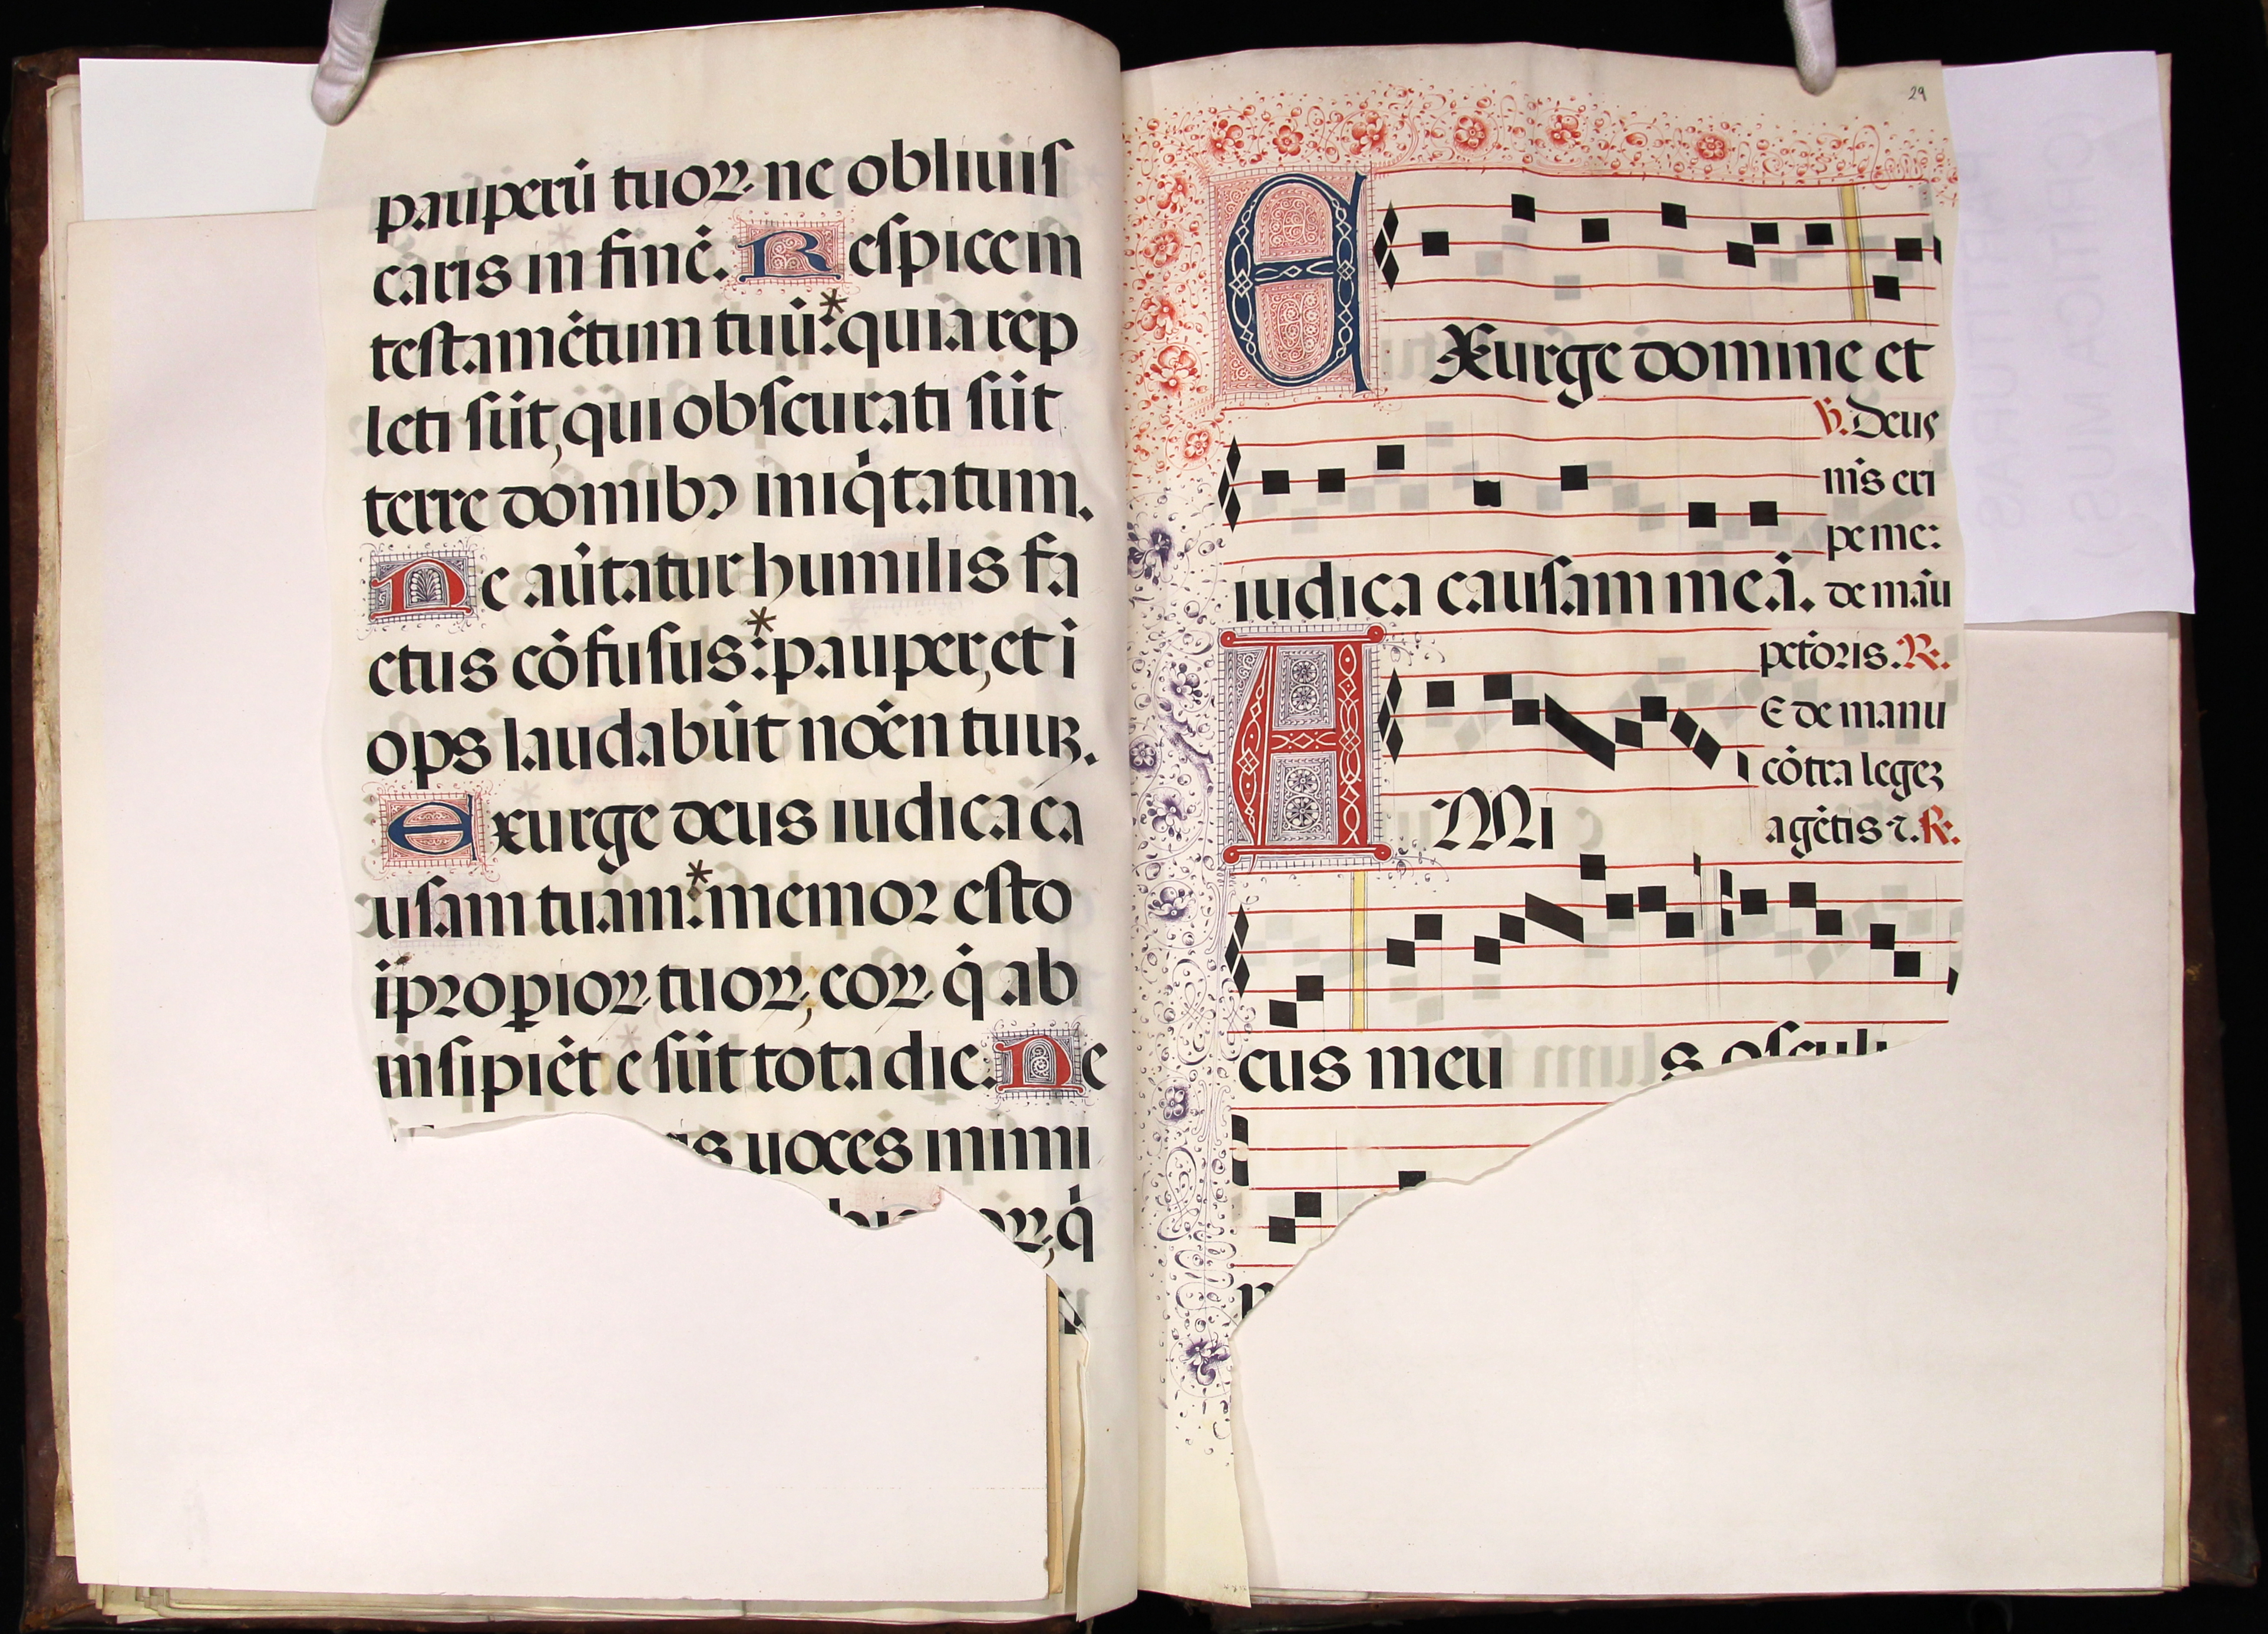 pauperū tuoꝝ ne obliuis
caris in finē. Respice in
testamētum tuū: quia rep
leti sūt, qui obscurati sūt
terre domibꝰ iniq̇tatum.
Ne aũtatur humilis fa
ctus cōfusus: pauper, et i
ops laudabūt noēn tuuꝫ.
Exurge deus iudica ca
usam tuam: memor esto
īpropioꝝ tuoꝝ, eoꝝ q̇ ab
insipiēt e sūt tota die. Ne
is uoces inimi
oꝝ, q̇
29
EXurge domine et
iudica causam meā.
℣. Deus
m̄s eri
pe me:
de māu
pctōris. ℟.
E de manu
cōtra legeꝫ
agētis ⁊. ℟.
AMi
cus meu s osculi